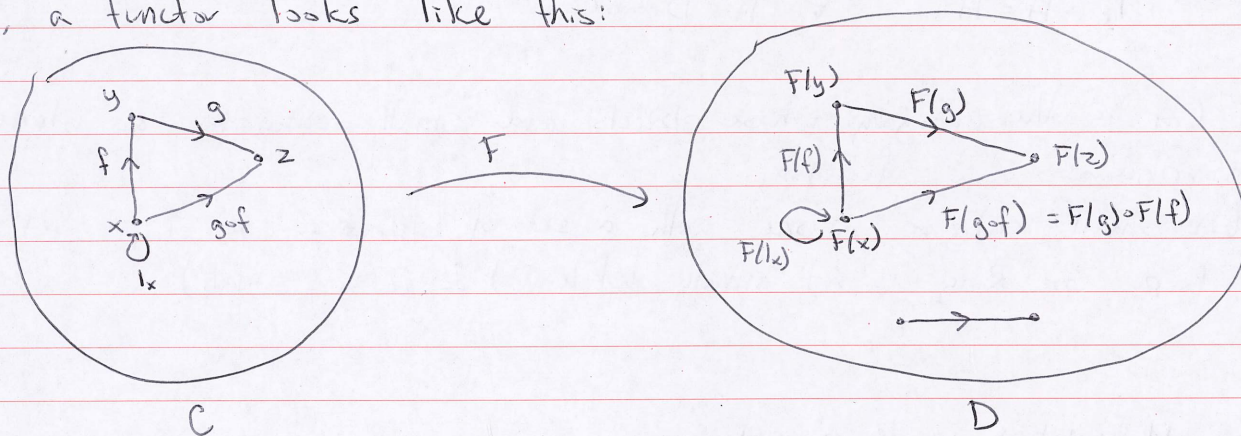 , a functor looks like this:
y g
f z
x g∘f
1x
F
F(y) F(g)
F(f) F(z)
F(1x) F(x) F(g∘f) = F(g)∘F(f)
C D